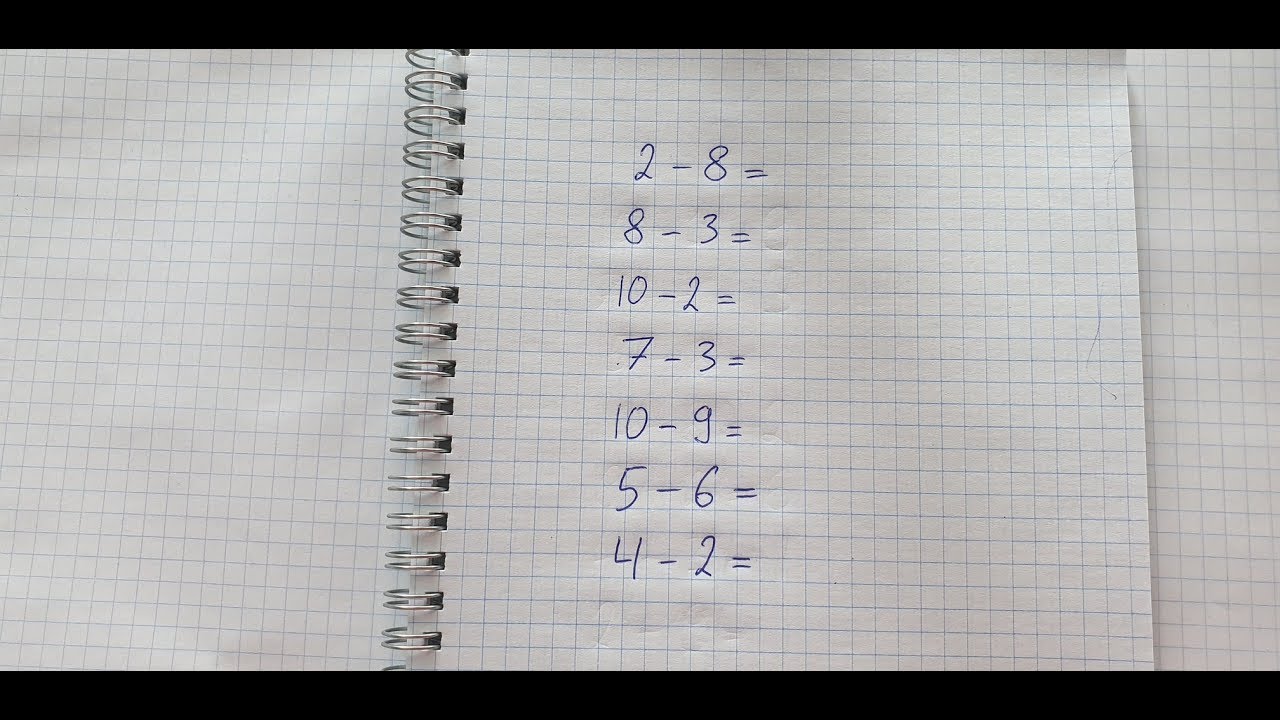 2 - 8 =
8 - 3 =
10 - 2 =
7 - 3 =
10 - 9 =
5 - 6 =
4 - 2 =